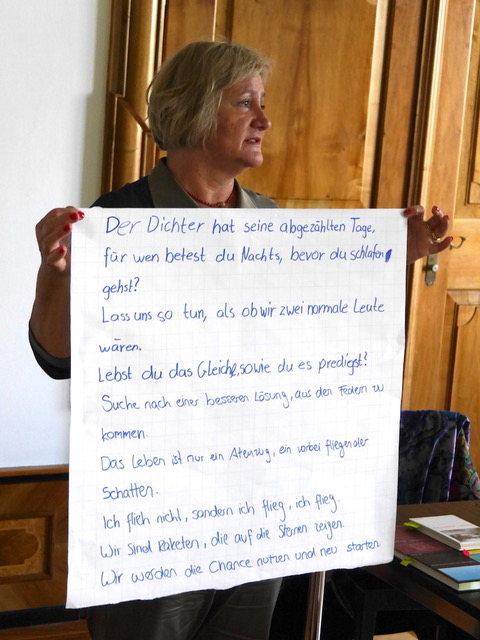 Der Dichter hat seine abgezählten Tage,
für wen betest du Nachts, bevor du schlafen
gehst?
Lass uns so tun, als ob wir zwei normale Leute
wären.
Lebst du das Gleiche, sowie du es predigst?
Suche nach einer besseren Lösung, aus den Federn zu
kommen.
Das Leben ist nur ein Atemzug, ein vorbei fliegender
Schatten.
Ich flieh nicht, sondern ich flieg, ich flieg.
Wir sind Raketen, die auf die Sterne zeigen.
Wir werden die Chance nutzen und neu starten.